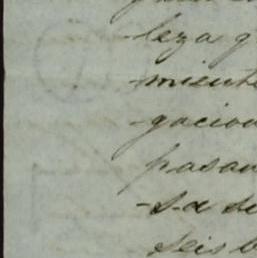 -leza q
-miento
-gacion
pasan
-sa de
seis b